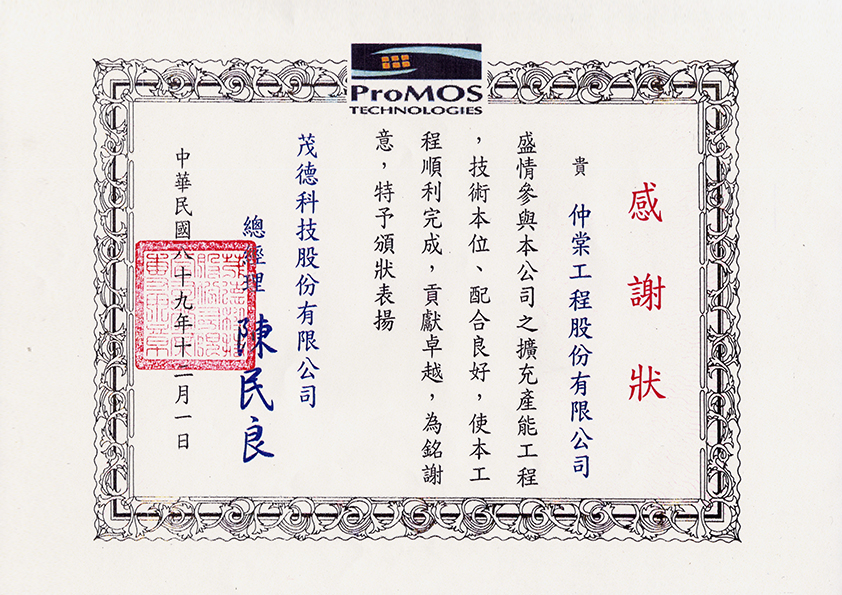 ProMOS
TECHNOLOGIES
感謝狀
貴 仲棠工程股份有限公司
盛情參與本公司之擴充產能工程
，技術本位、配合良好，使本工
程順利完成，貢獻卓越，為銘謝
意，特予頒狀表揚
茂德科技股份有限公司
總經理 陳民良
中華民國八十九年十二月一日